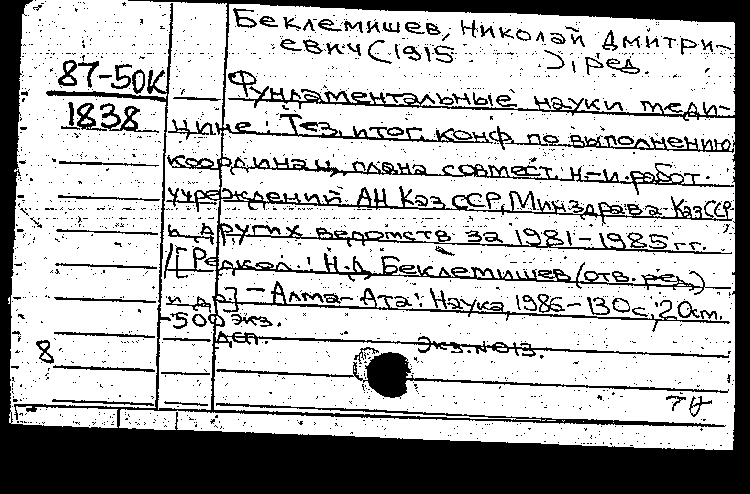 Беклемишев, Николай Дмитри-
евич (1915      ), ред.
87-50К
1838
Фундаментальные науки меди-
цине: Тез. итог. конф. по выполнению
координац. плана совмест. н-и. работ.
учреждений АН КазССР, Минздрава КазССР
и других ведомств за 1981-1985 гг.
/[Редкол.: Н.Д. Беклемишев (отв. ред.)
и др.] - Алма-Ата: Наука, 1986-130 с.; 20 см.
-500 экз.
деп.
Экз. № 013.
8